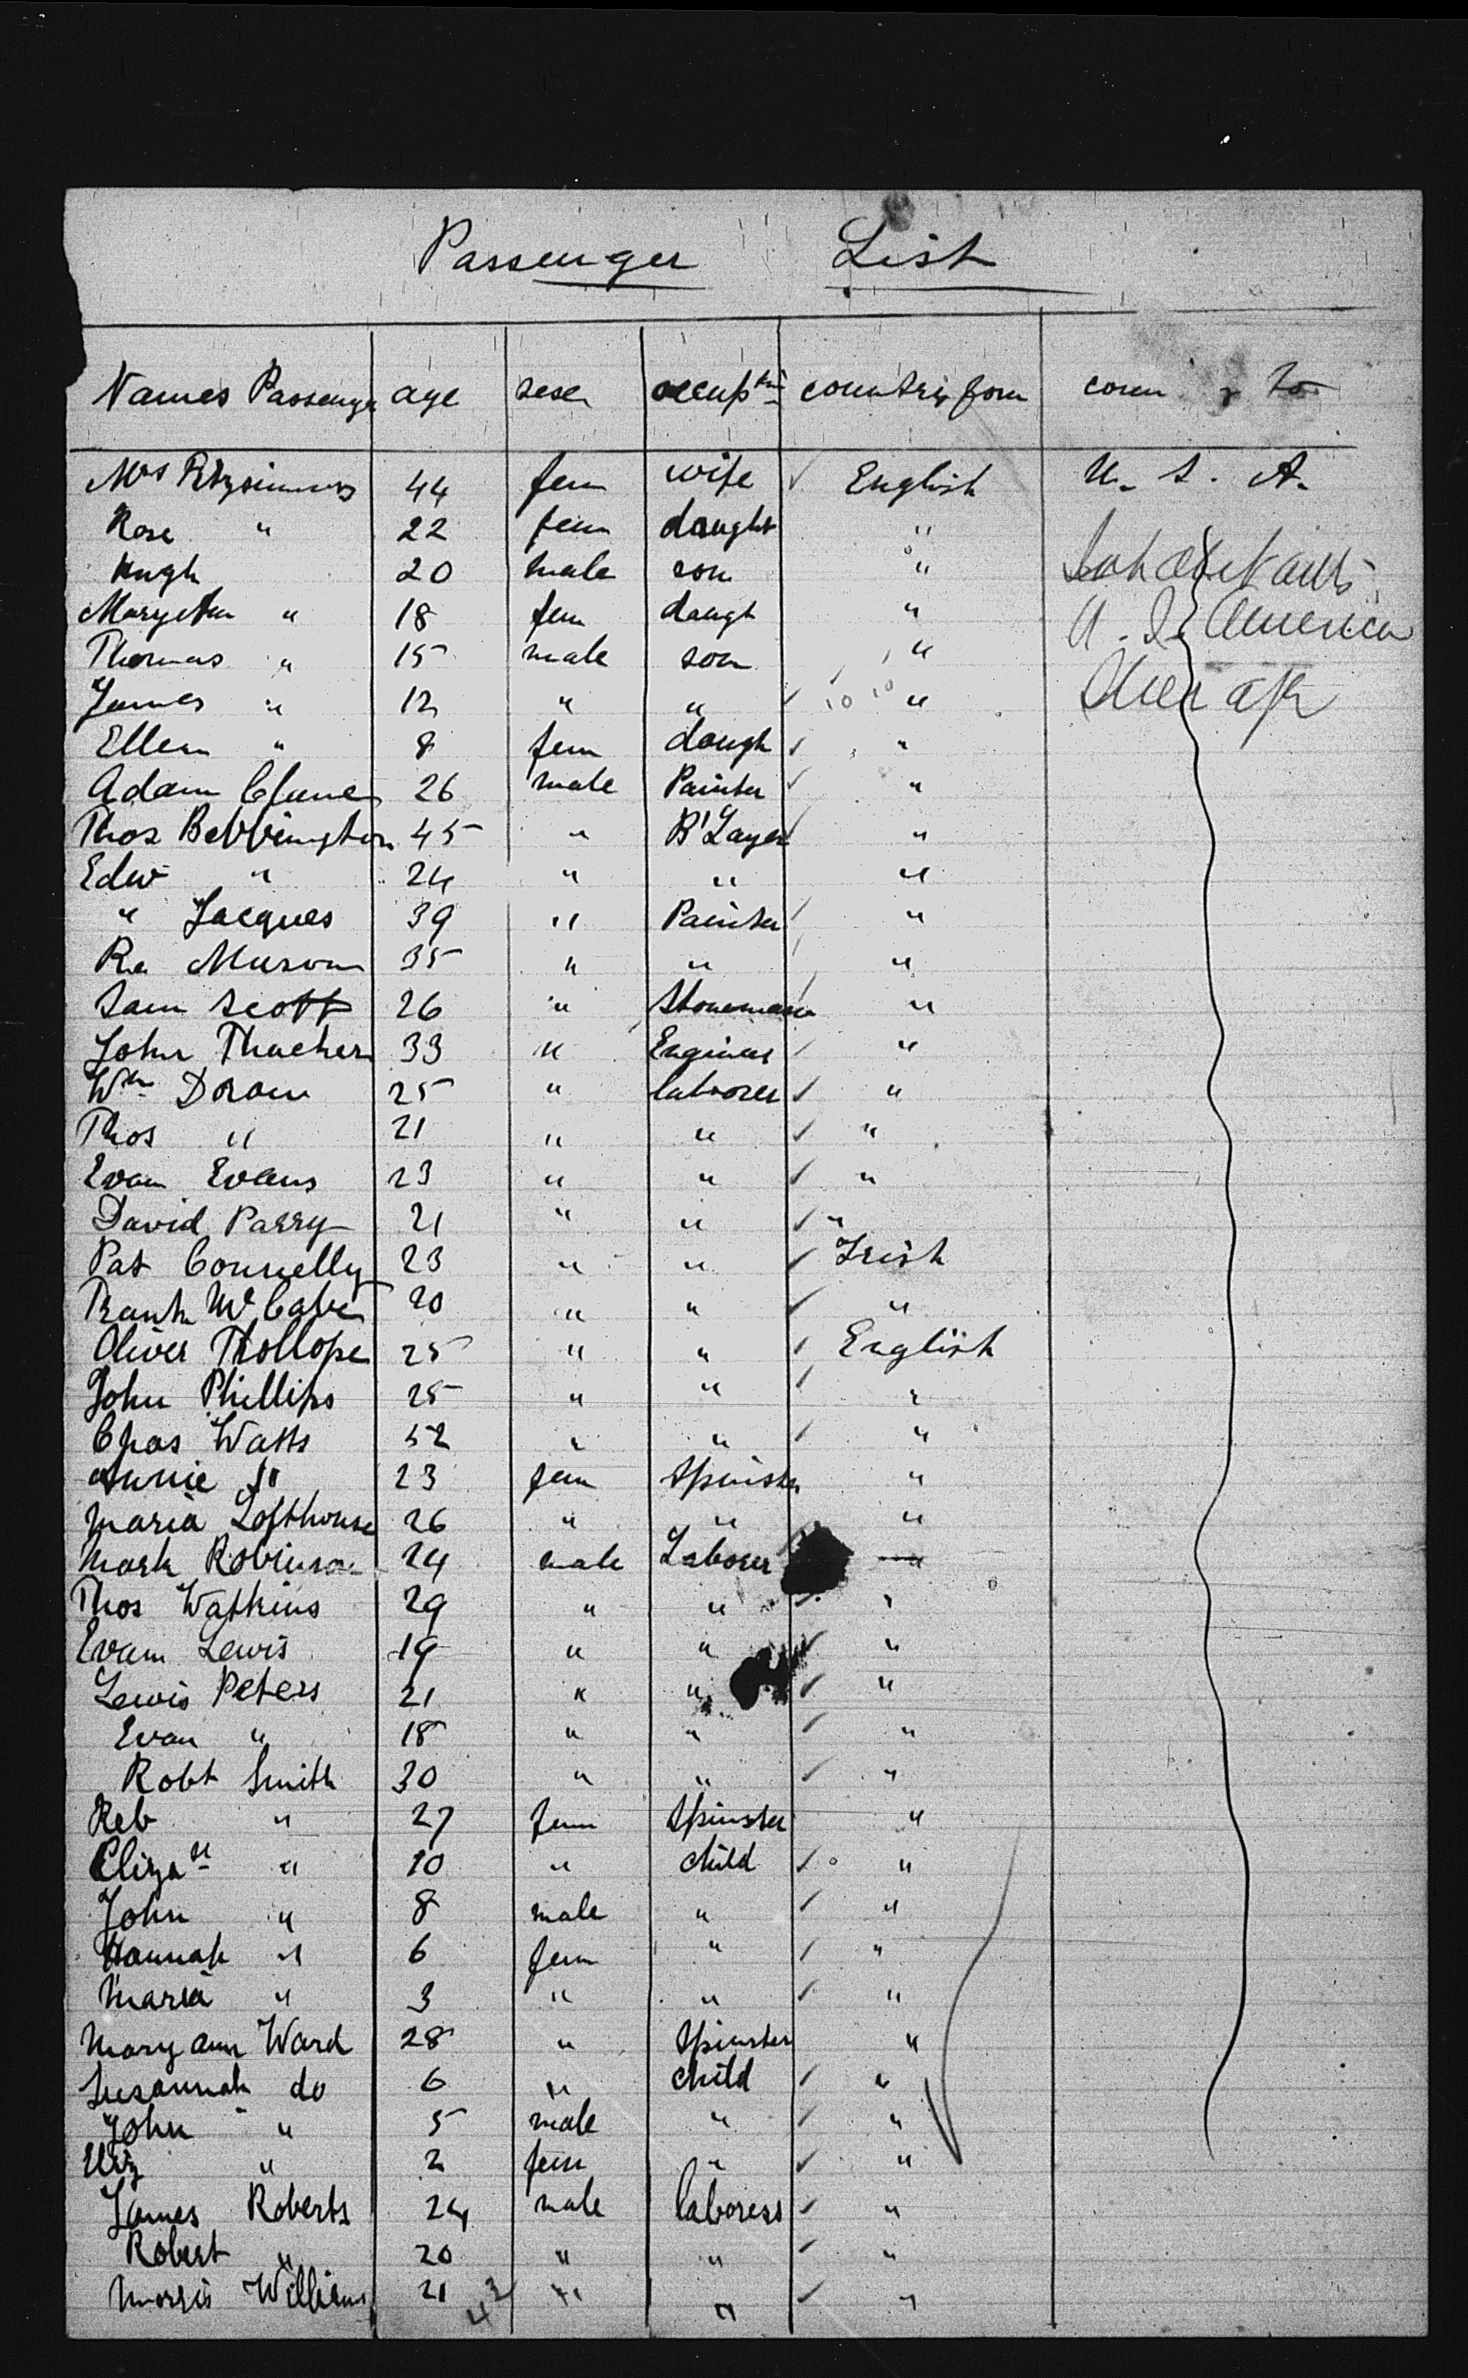 Passenger List
Names Passenger age sex occupt countrix from coun y to
Mrs Fitzsimmons 44 fem wife ✓ English U. S. A.
Rose " 22 fem daught "
Hugh 20 male son " Inhabitants
Mary Ann " 18 fem daugh " U. S. America
Thomas " 15 male son "
James " 12 " " ✓ "
Ellen " 8 fem daugh ✓ "
Adam 26 male Painter ✓ "
Thos Bebbington 45 " B'Layer "
Edw " 24 " " "
" Jacques 39 " Painter "
35 " " "
Sam Scott 26 " Stonemason "
John Thacker 33 " Engineer "
Wm Doran 25 " laborer ✓ "
Thos " 21 " " ✓ "
Evan Evans 23 " " ✓ "
David Parry 21 " " ✓ "
Pat Connelly 23 " " ✓ Irish
Frank McCabe 20 " " ✓ "
Oliver Trollope 25 " " ✓ English
John Phillips 25 " " ✓ "
Chas Watts 52 " " ✓ "
Annie " 23 fem Spinster "
Maria Lofthouse 26 " " "
Mark Robinson 24 male Laborer "
Thos Watkins 29 " " ✓ "
Evan Lewis 19 " " ✓ "
Lewis Peters 21 " " ✓ "
Evan " 18 " " ✓ "
Robt Smith 30 " " ✓ "
Reb " 27 fem Spinster "
Eliza " 10 " child ✓ "
John " 8 male " ✓ "
Hannah " 6 fem " ✓ "
Maria " 3 " " ✓ "
Mary Ann Ward 28 " Spinster "
Susannah do 6 " child ✓ "
John " 5 male " ✓ "
Eliz " 2 fem " ✓ "
James Roberts 24 male laborers ✓ "
Robert " 20 " " ✓ "
Morris Williams 21 " " ✓ "
43